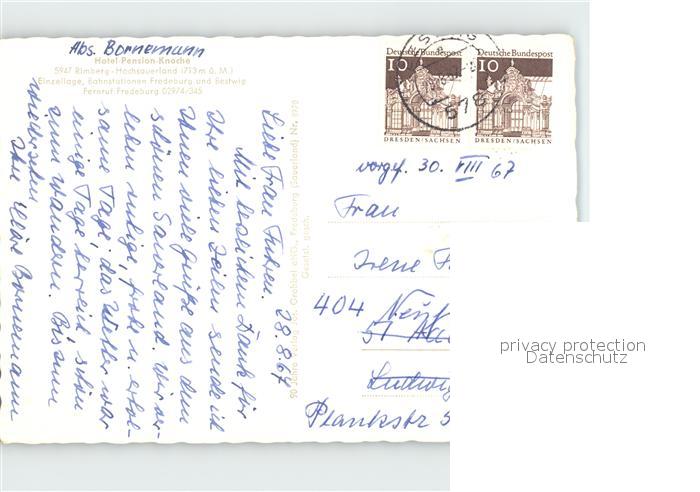 Abs. Bornemann
Hotel-Pension-Knoche
5947 Rimberg-Hochsauerland (713 m ü. M.)
Einzellage, Bahnstationen Fredeburg und Bestwig
Fernruf Fredeburg 02974/345
28.8.67
Liebe Frau Fuhren.
Mit herzlichem Dank für
Ihre lieben Zeilen sende ich
Ihnen viele Grüße aus dem
schönen Sauerland. Wir ver-
leben ruhige, frohe u. erhol-
same Tage, das Wetter war
einige Tage herrlich schön
zum Wandern. Bis zum
Wiedersehen
Ihre Bornemann
90 Jahre Verlag Jos. Grobbel oHG., Fredeburg (Sauerland) Nr.
Gesetzl. gesch.
Deutsche Bundespost
10
DRESDEN/SACHSEN
Deutsche Bundespost
10
DRESDEN/SACHSEN
vorgef. 30. VIII 67
Frau
Irene F
404 Neuß
51 Aa
Ludwig
Plankstr 5
privacy protection
Datenschutz